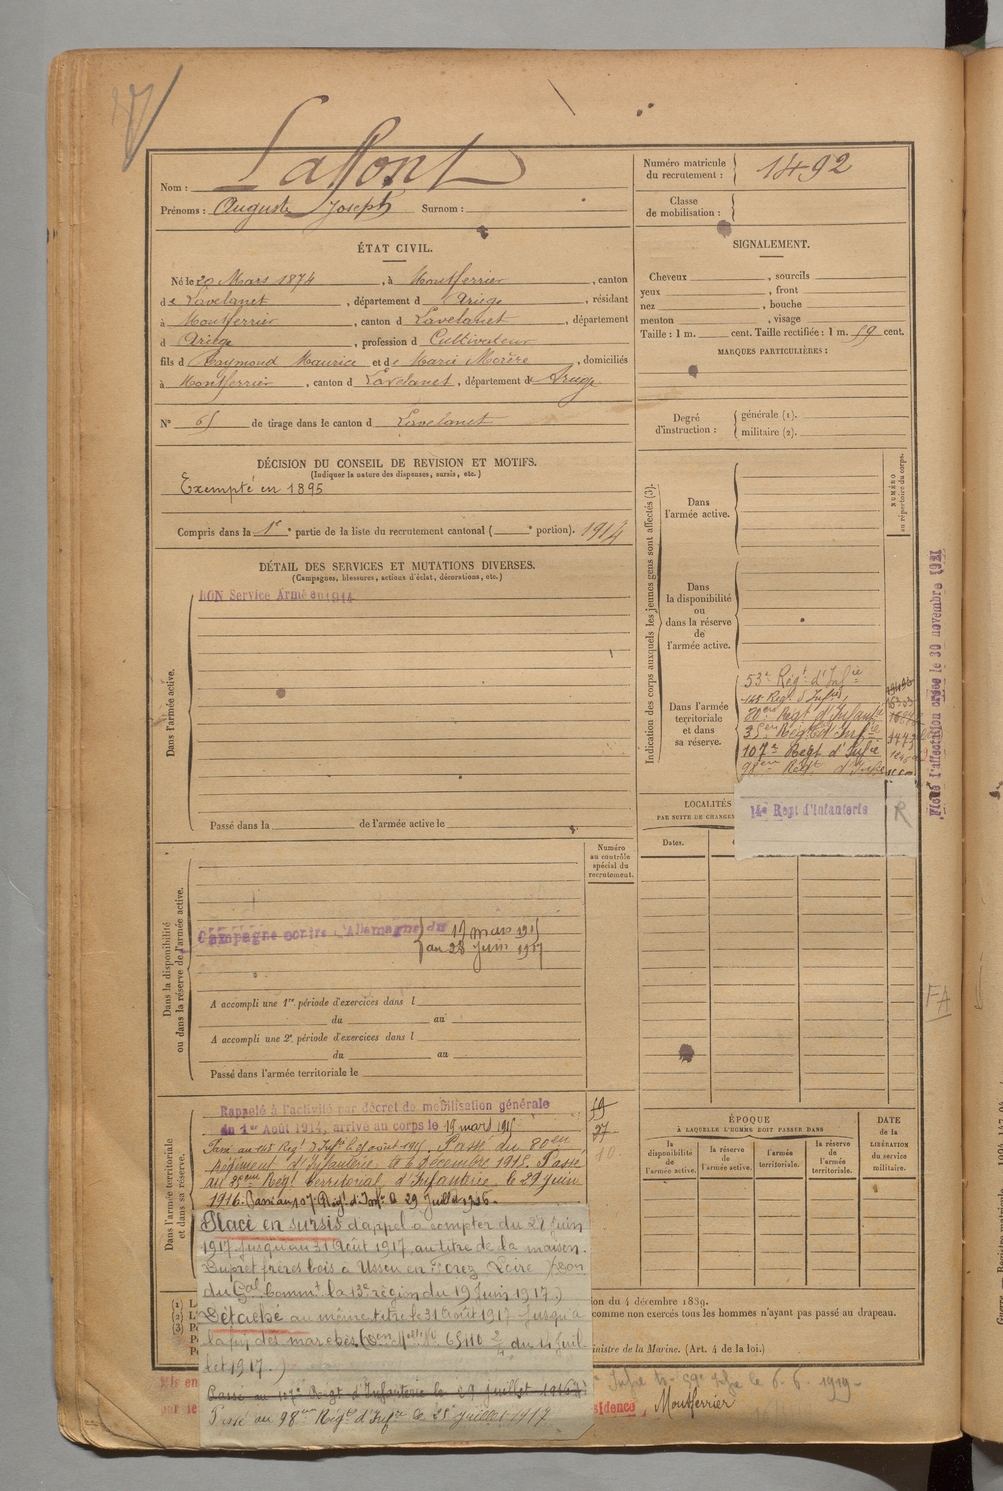 Nom : Laffont
Prénoms : Auguste Joseph Surnom :
Numéro matricule du recrutement : 1492
Classe de mobilisation :
ÉTAT CIVIL.
Né le 20 Mars 1874, à Montferrier, canton
de Lavelanet, département d Ariège, résidant
à Montferrier, canton d Lavelanet, département
d Ariège, profession d Cultivateur
fils d Raymond Maurice et de Marie Morère, domiciliés
à Montferrier, canton d Lavelanet, département d Ariège
N° 65 de tirage dans le canton d Lavelanet
DÉCISION DU CONSEIL DE REVISION ET MOTIFS.
(Indiquer la nature des dispenses, sursis, etc.)
Exempté en 1895
Compris dans la 1re partie de la liste du recrutement cantonal ( e portion). 1914
SIGNALEMENT.
Cheveux , sourcils
yeux , front
nez , bouche
menton , visage
Taille : 1 m. cent. Taille rectifiée : 1 m. 59 cent.
MARQUES PARTICULIÈRES :
Degré d'instruction :
générale (1).
militaire (2).
DÉTAIL DES SERVICES ET MUTATIONS DIVERSES.
(Campagnes, blessures, actions d'éclat, décorations, etc.)
Dans l'armée active.
BON Service Armé en 1914
Passé dans la de l'armée active le
Indication des corps auxquels les jeunes gens sont affectés (3).
NUMÉRO au répertoire du corps.
Dans l'armée active.
Dans la disponibilité ou dans la réserve de l'armée active.
Dans l'armée territoriale et dans sa réserve.
53e Régt d'Infie
148 Régt d'Infie
80eme Régt d'Infanterie
35eme Régt d'Infie
107e Regt d'Infie
98eme Régt d'Infie
14e Regt d'Infanterie R
le 30 novembre 1921
LOCALITÉS
PAR SUITE DE CHANGEM
Dates.
Dans la disponibilité ou dans la réserve de l'armée active.
Numéro au contrôle spécial du recrutement.
Campagne contre l'Allemagne du 19 mars 1915
au 28 juin 1917
A accompli une 1re période d'exercices dans l
du au
A accompli une 2e période d'exercices dans l
du au
Passé dans l'armée territoriale le
FA
Dans l'armée territoriale et dans sa réserve.
Rappelé à l'activité par décret de mobilisation générale
du 1er Août 1914, arrivé au corps le 19 mars 1915
Passé au 80eme
Régiment d'Infanterie le 6 Décembre 1915. Passé
au 35eme Régt territorial d'Infanterie le 29 juin
1916. Passé au 107e Régt d'Infie le 29 Juillet 1916.
Placé en sursis d'appel a compter du 27 juin
1917 jusqu'au 31 Août 1917, au titre de la maison
Dupret frères bois à Usson en Forez Loire
du Gal Commt la 13e région du 19 Juin 1917.)
Détaché au même titre le 31 Août 1917 jusqu'à
la fin des marchés. 65110 du 14 Juil
let 1917.)
Passé au 98eme Régt d'Infie le 25 juillet 1917
ÉPOQUE
À LAQUELLE L'HOMME DOIT PASSER DANS
la disponibilité de l'armée active.
la réserve de l'armée active.
l'armée territoriale.
la réserve de l'armée territoriale.
DATE de la LIBÉRATION du service militaire.
ion du 4 décembre 1889.
comme non exercés tous les hommes n'ayant pas passé au drapeau.
inistre de la Marine. (Art. 4 de la loi.)
le 6.6.1919
Mis en
par le
sidence, Montferrier